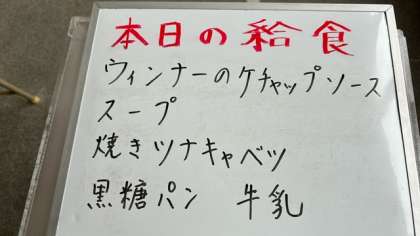 本日の給食
ウィンナーのケチャップソース
スープ
焼きツナキャベツ
黒糖パン 牛乳